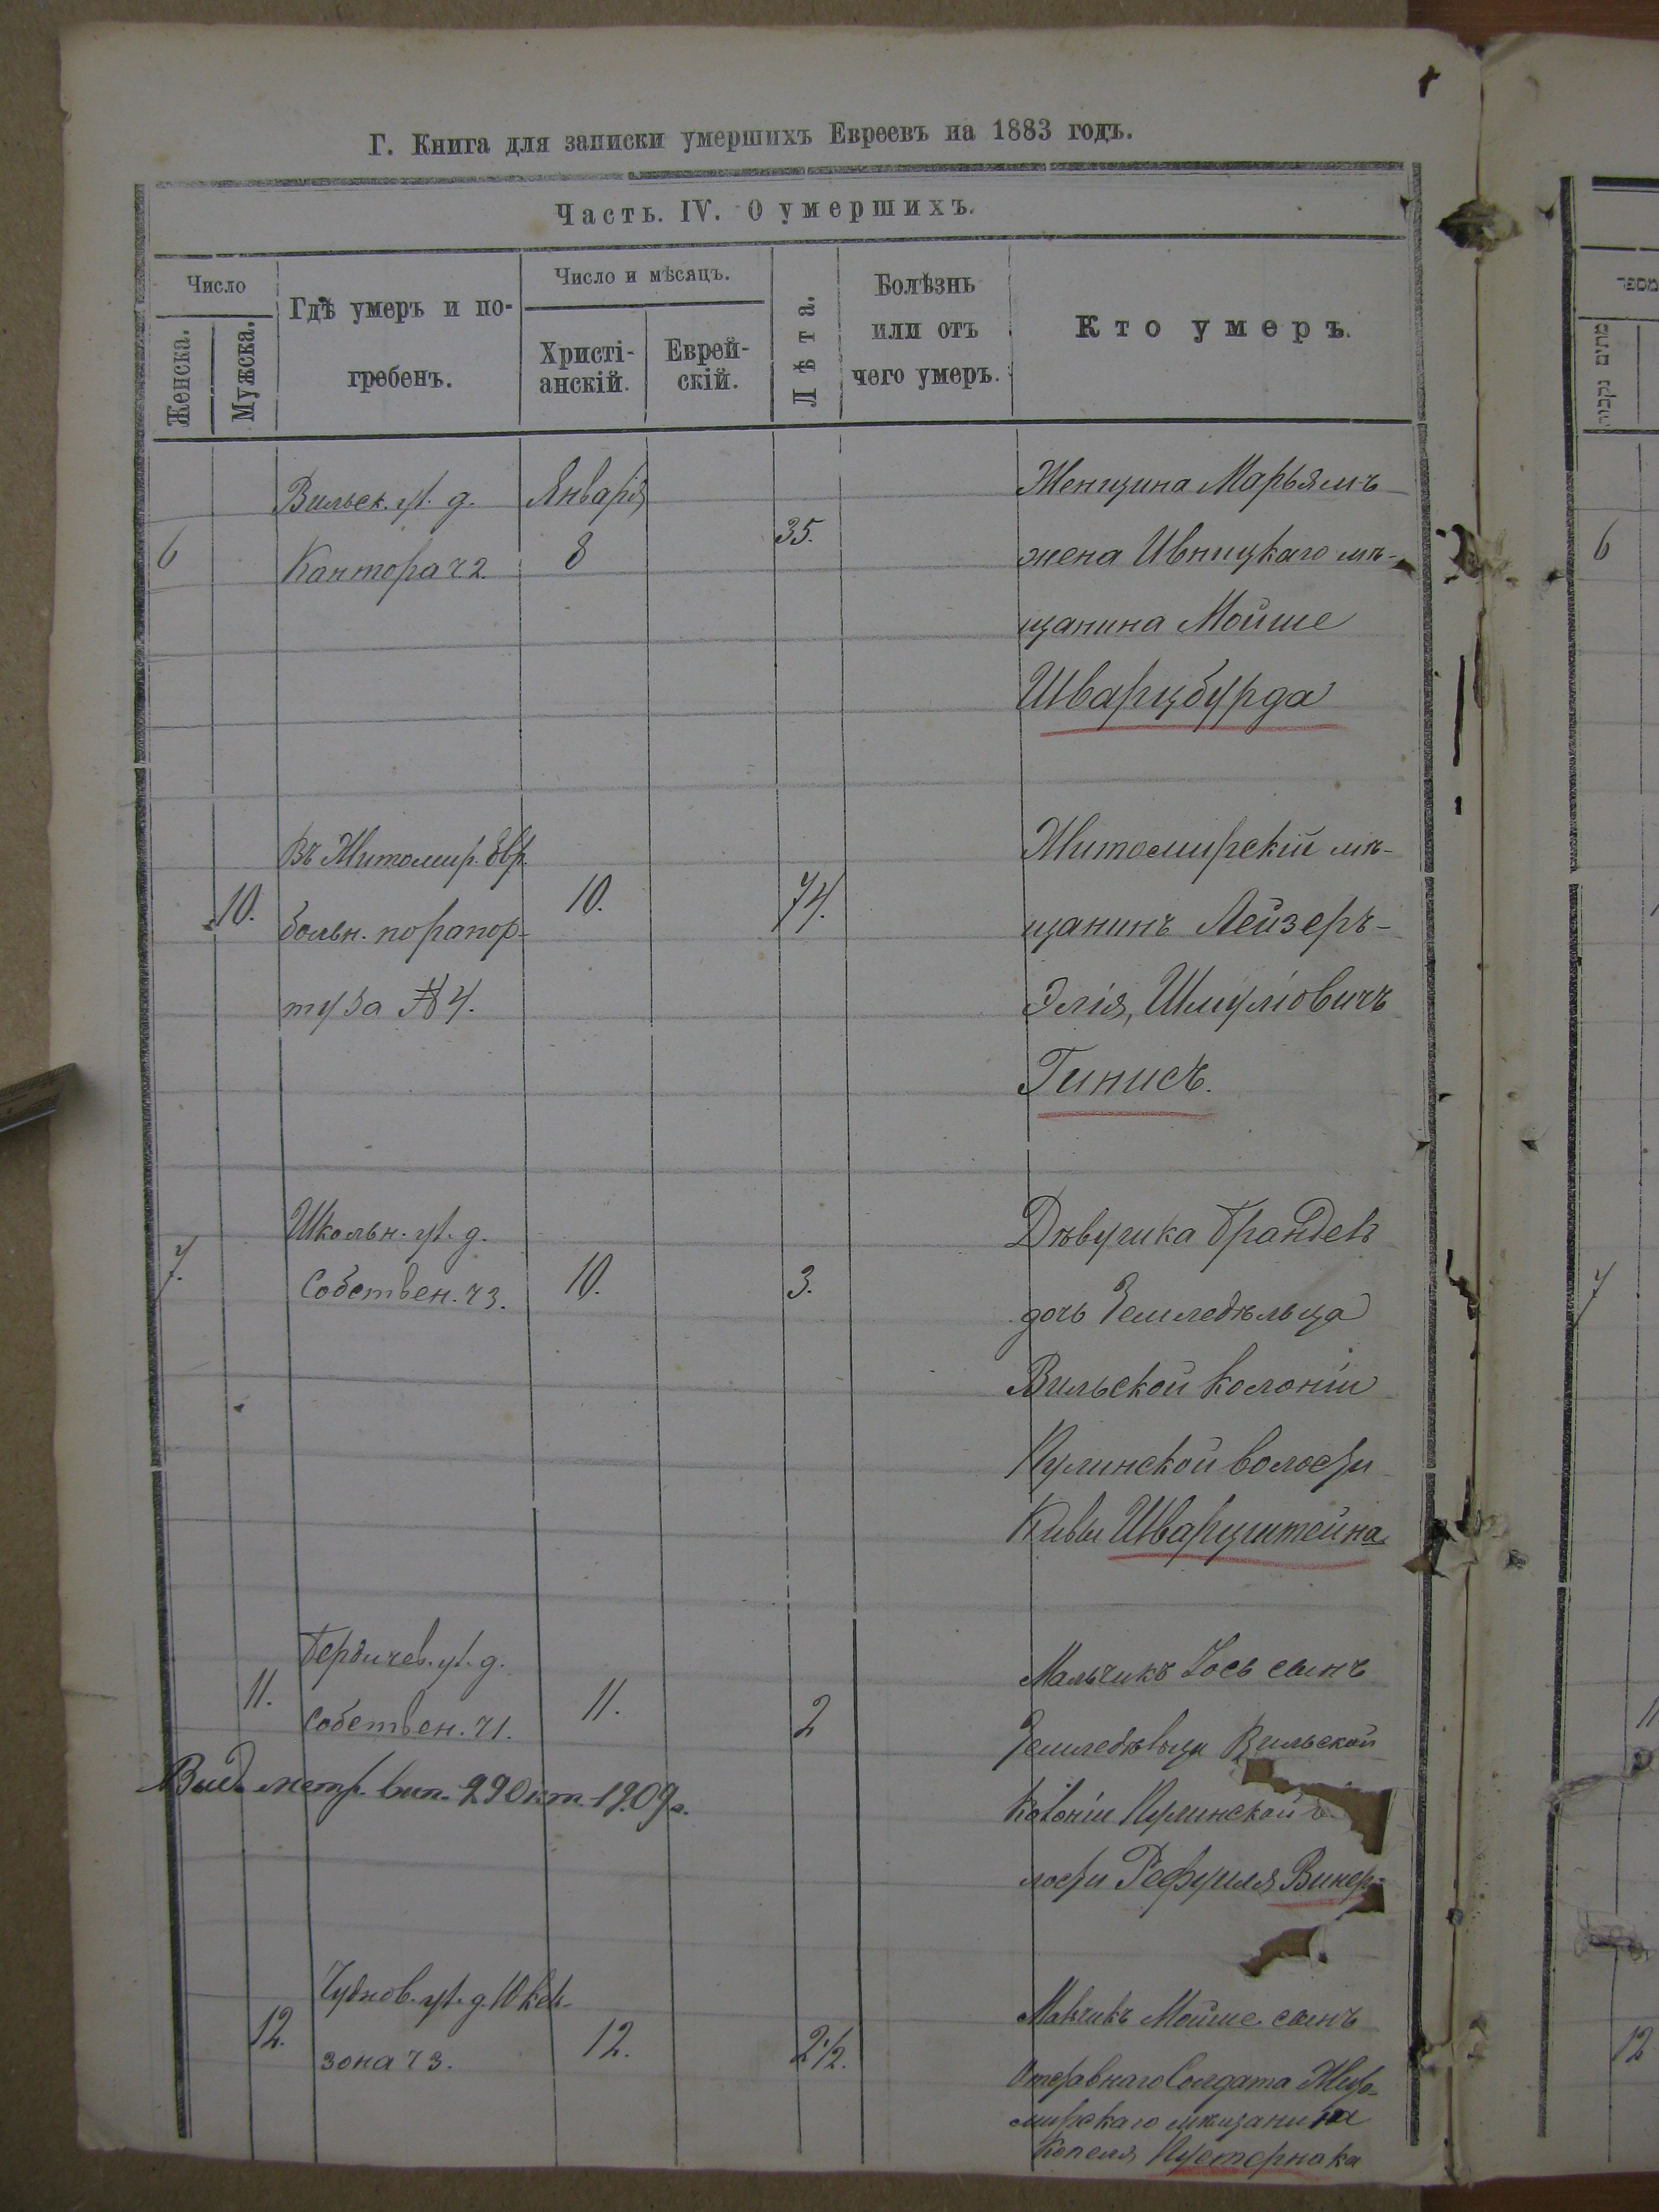 Г. Книга для записки умершихъ Евреевъ на 1883 годъ.
Часть. IV. О умершихъ.
Число
Женска.
Мужска.
Гдѣ умеръ и по-
гребенъ.
Число и мѣсяцъ.
Христі-
анскій.
Еврей-
скій.
Лѣта.
Болѣзнь
или отъ
чего умеръ.
Кто умеръ.
6
Вильск. ул. д.
Кантора ч 2.
Января
8
35.
Женщина Марьямъ
жена Ивницкаго мѣ-
щанина Мойше
Шварцбурда
10.
Въ Житомир. Евр.
больн. по рапор-
ту за № 4.
10.
74.
Житомирскій мѣ-
щанинъ Лейзеръ-
Элія, Шмуліовичъ
Гинисъ.
7.
Школьн. ул. д.
Собствен. ч 3.
10.
3.
Дѣвушка Брандель
дочь Земледѣльца
Вильской колоніи
Кулинской волости
Кивы Шварцштейна
11.
Бердичев. ул. д.
Собствен. ч 1.
11.
2
Мальчикъ Іось сынъ
Земледѣльца Вильской
колоніи Кулинской
лости Рефуиля Винер-
Выд. метр. вып. 29 Окт. 1909 г.
12.
Чуднов. ул. д.
зона ч 3.
12.
2 1/2.
Мальчикъ Мойше сынъ
Отставнаго Солдата Жито-
мирскаго мѣщанина
Копеля Пустернака
6
7
11
12